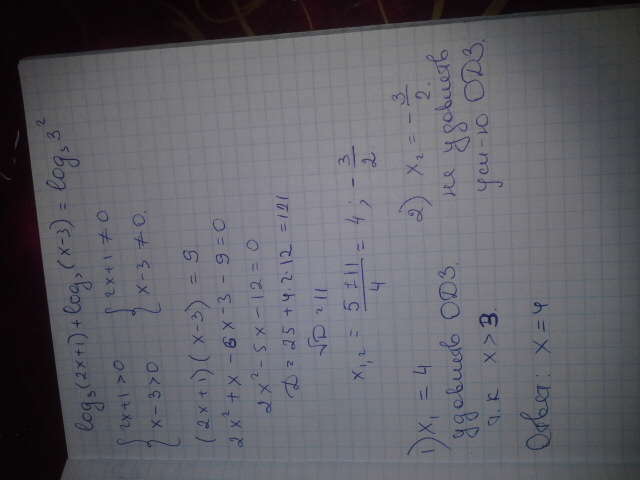 log₃(2x+1)+log₃(x-3)=log₃3²
{2x+1>0 {2x+1≠0
{x-3>0 {x-3≠0.
(2x+1)(x-3)=9
2x²+x-6x-3-9=0
2x²-5x-12=0
D=25+4·2·12=121
√D=11
x₁,₂=(5±11)/4=4; -3/2
1) x₁=4
удовлетв ОДЗ.
т.к x>3.
2) x₂=-3/2.
не удовлетв
усл-ю ОДЗ.
Ответ: x=4